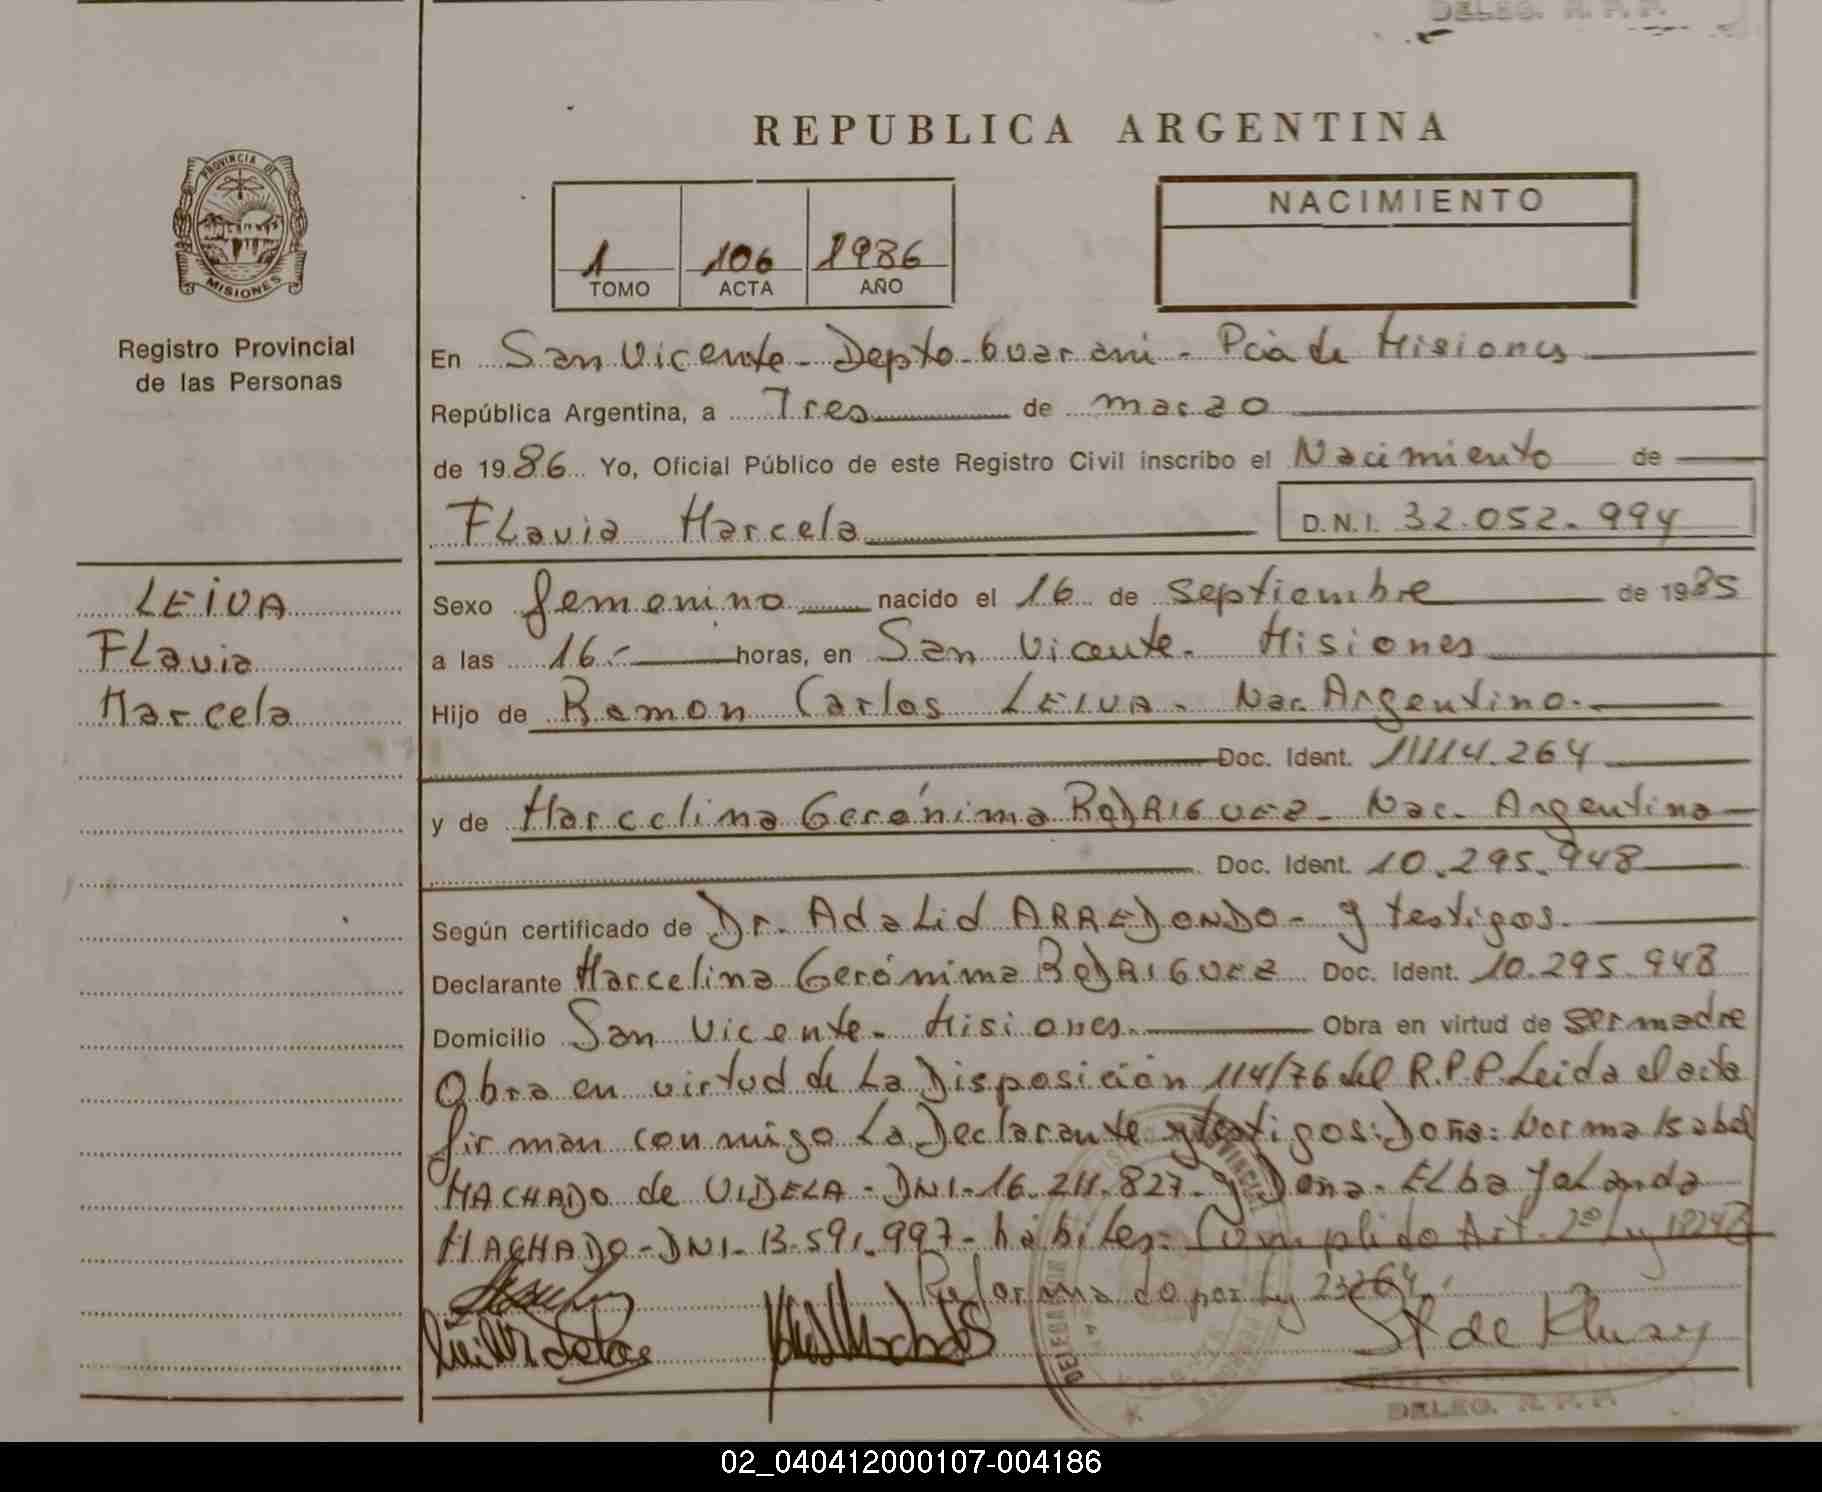 DELEG. R. P. P.
REPUBLICA ARGENTINA
PROVINCIA DE
MISIONES
Registro Provincial
de las Personas
1 106 1986
TOMO ACTA AÑO
NACIMIENTO
En San Vicente - Depto. Guarani - Pcia de Misiones
República Argentina, a Tres de marzo
de 1986 Yo, Oficial Público de este Registro Civil inscribo el Nacimiento de
Flavia Marcela D.N.I. 32.052.994
LEIVA
Flavia
Marcela
Sexo femenino nacido el 16 de septiembre de 1985
a las 16.- horas, en San Vicente. Misiones
Hijo de Ramon Carlos LEIVA - Nac. Argentino.-
Doc. Ident. 11114.264
y de Marcelina Gerónima RODRIGUEZ - Nac. Argentina
Doc. Ident. 10.295.948
Según certificado de Dr. Adalid ARREDONDO - y testigos.
Declarante Marcelina Gerónima RODRIGUEZ Doc. Ident. 10.295.948
Domicilio San Vicente - Misiones. Obra en virtud de ser madre
Obra en virtud de La Disposición 114/76 del R.P.P. Leida el acta
firman conmigo La Declarante y testigos: Doña: Norma Isabel
MACHADO de VIDELA - DNI - 16.211.827 - y Dona - Elba Yolanda
MACHADO - DNI - 13.591.997 - hábiles: Cumplido Art. 2º Ley 18248
Reformado por Ley 23264.
DELEG. R. P. P.
02_040412000107-004186